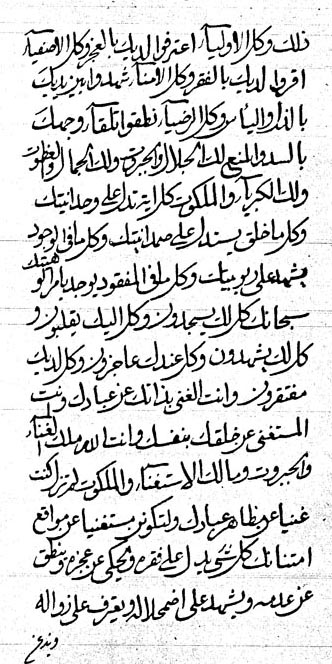 ذلك وكل الاولياء اعترفوا لديك بالعجز وكل الاصفياء
اقروا لديك بالفقر وكل الامناء شهدوا بين يديك
بالذل والياس وكل الرضياء نطقوا تلقاء وجهك
بالسد والمنع لك الجلال والجبروت ولك الجمال والعظموت
ولك الكبرياء والملكوت كل اية تدل على وحدانيتك
وكل ما خلق يستدل على صمدانيتك وكل ما في الوجود
يشهد على ربوبيتك وكل ما في المفقود يوجد بامر الوهيتك
سبحانك كل لك يسجدون وكل اليك يقلبون و
كل لك يشهدون وكل عندك عاجزون وكل لديك
مفتقرون وانت الغني بذاتك عن عبادك وانت
المستغني عن خلقك بنفسك وانت الله ملك الغناء
والجبروت ومالك الاستغناء والملكوت لم تزل كنت
غنيا عن مظاهر عبادك ولتكونن مستغنيا عن مواقع
امتنانك كل شيء يدل على فقره ويحكي عن عجزه وينطق
عن عدمه ويشهد على اضمحلاله ويعرف على زواله